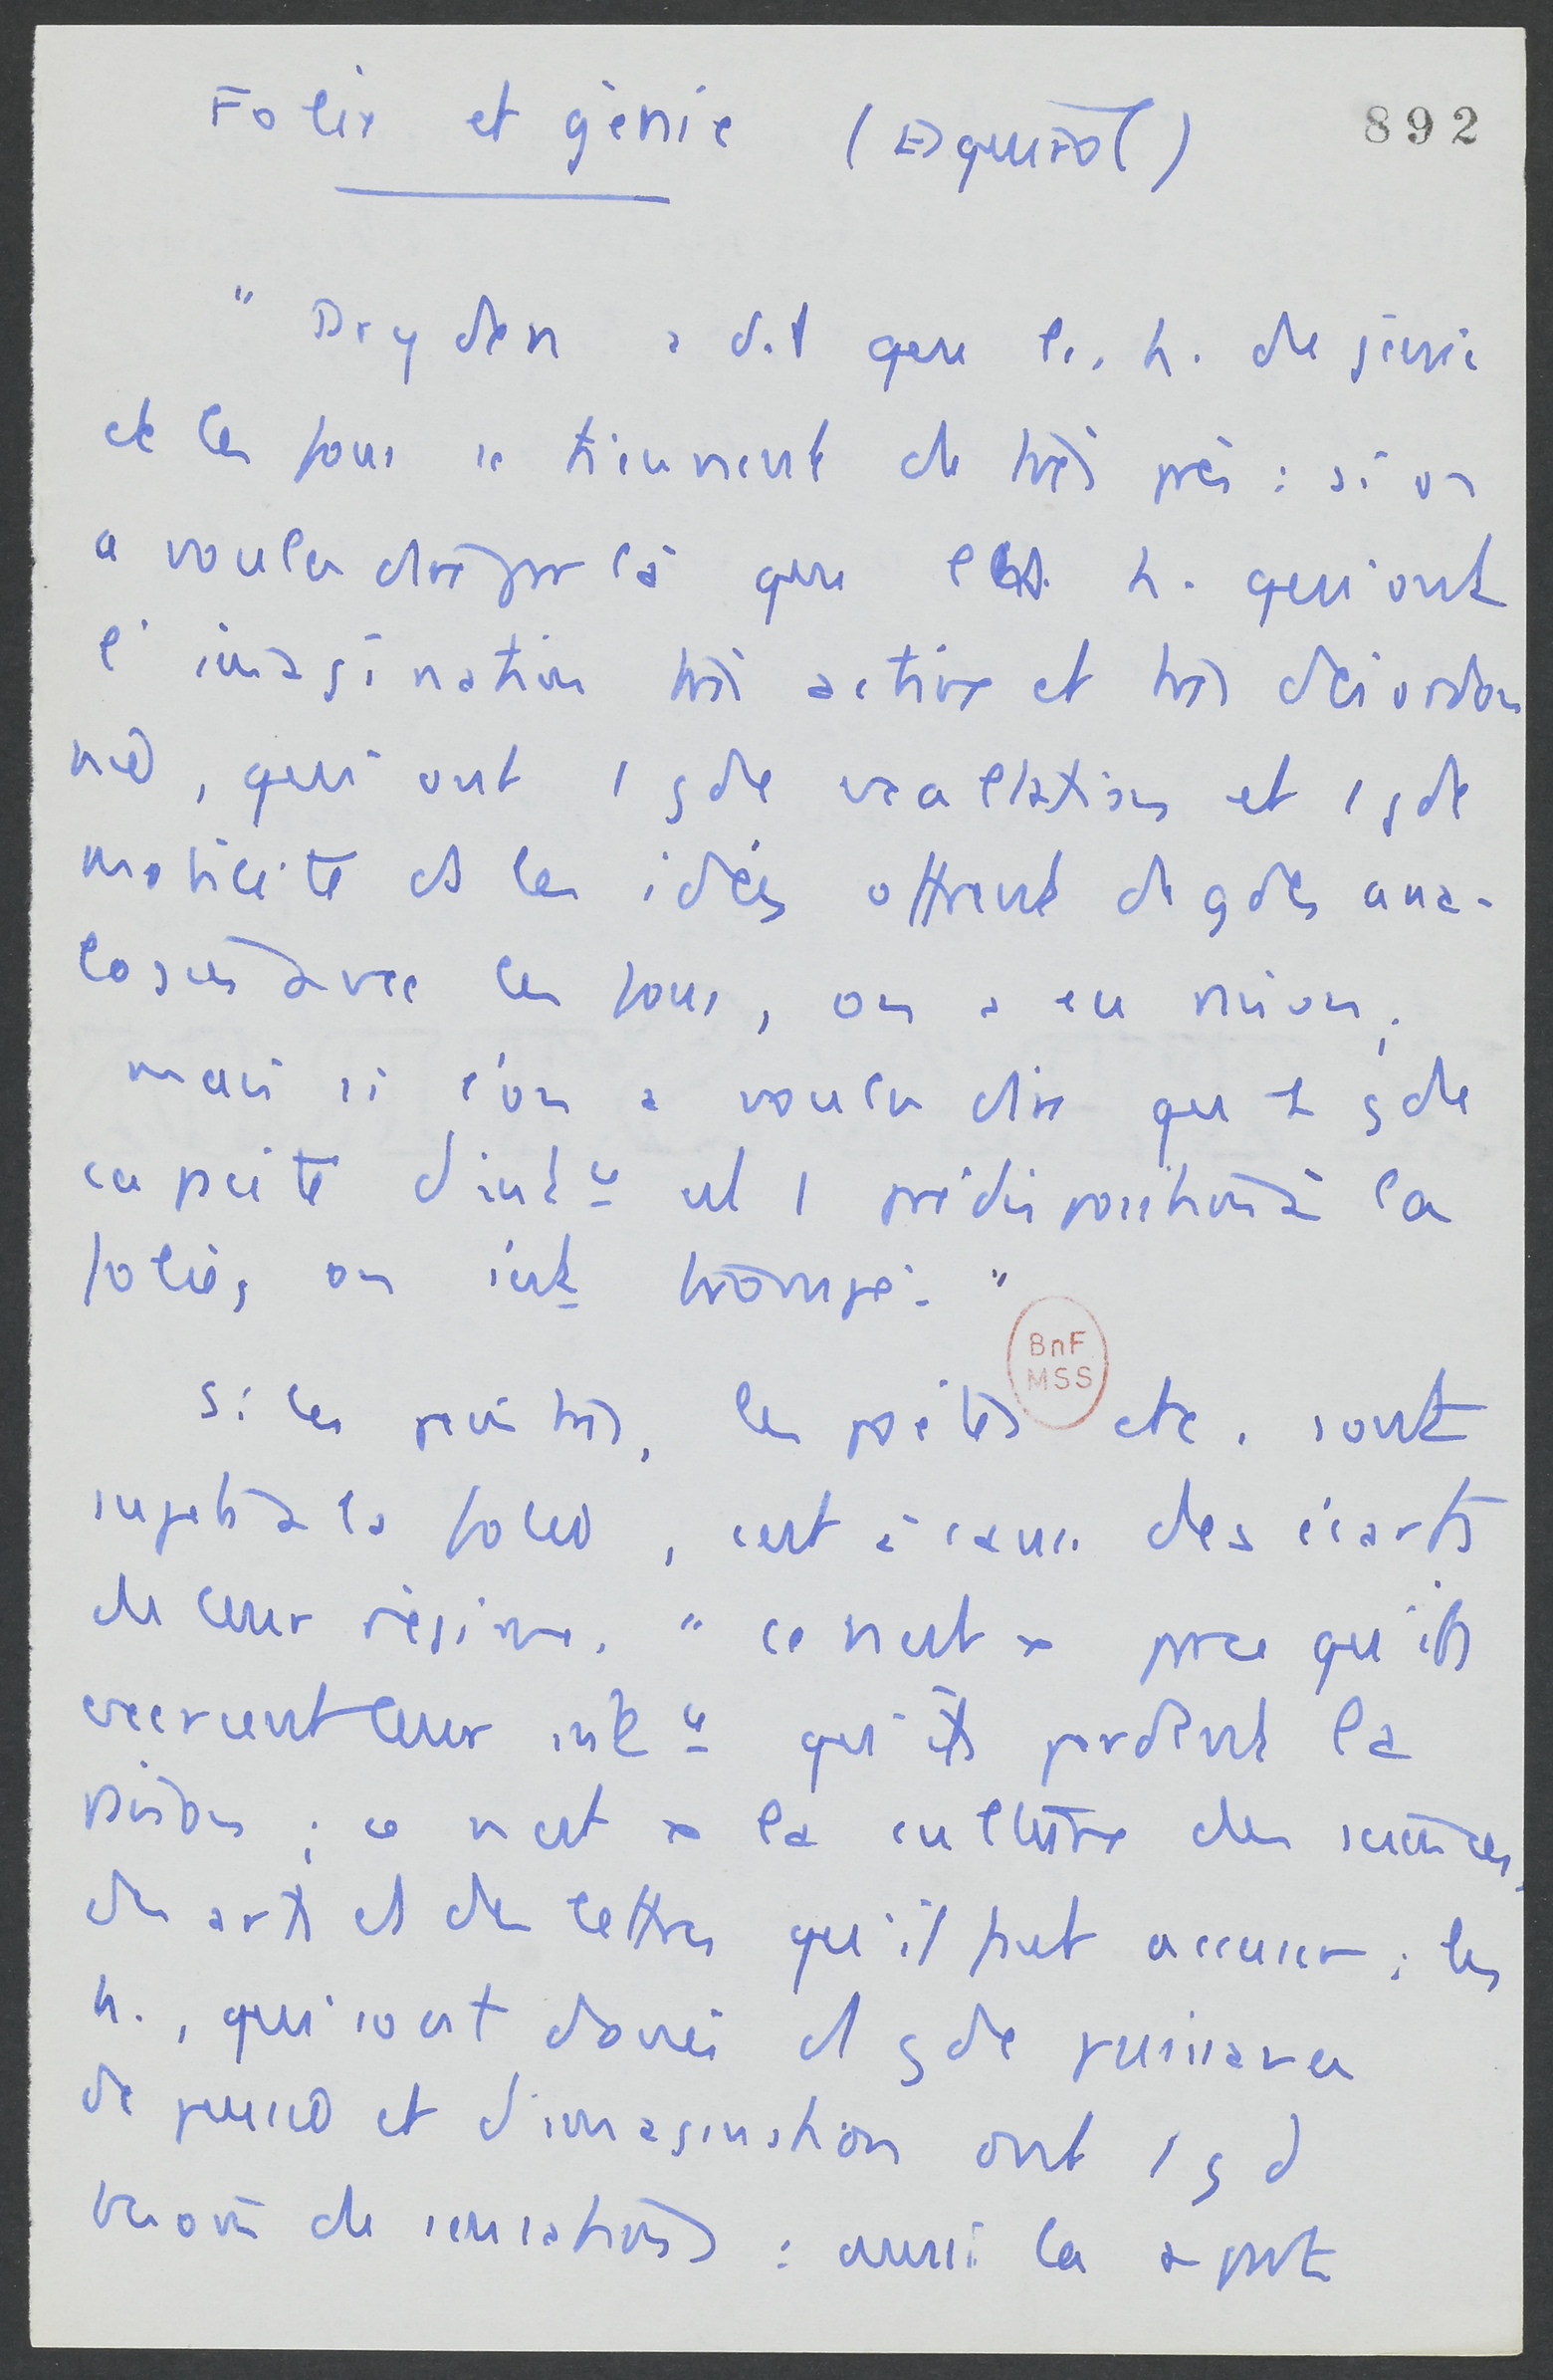 Folie et génie (Esquirol)
892
" Dryden a dit que les h. de génie
et les fous se tiennent de très près : si on
a voulu dire par là que les h. qui ont
l'imagination très active et très désordon
née, qui ont 1 gde exaltation et 1 gde
mobilité ds les idées offrent de gdes ana-
logies avec les fous, on a eu raison ;
mais si l'on a voulu dire que 1 gde
capacité d'int est 1 prédisposition à la
folie, on s'est trompé. "
BnF
MSS
Si les peintres, les poètes etc. sont
sujets à la folie, c'est à cause des écarts
de leur régime. " ce n'est x parce qu'ils
exercent leur int qu'ils perdent la
raison ; ce n'est x la culture des sciences,
des arts et des lettres qu'il faut accuser ; les
h., qui sont doués d'1 gde puissance
de pensée et d'imagination ont 1 gd
besoin de sensations : aussi la plupart